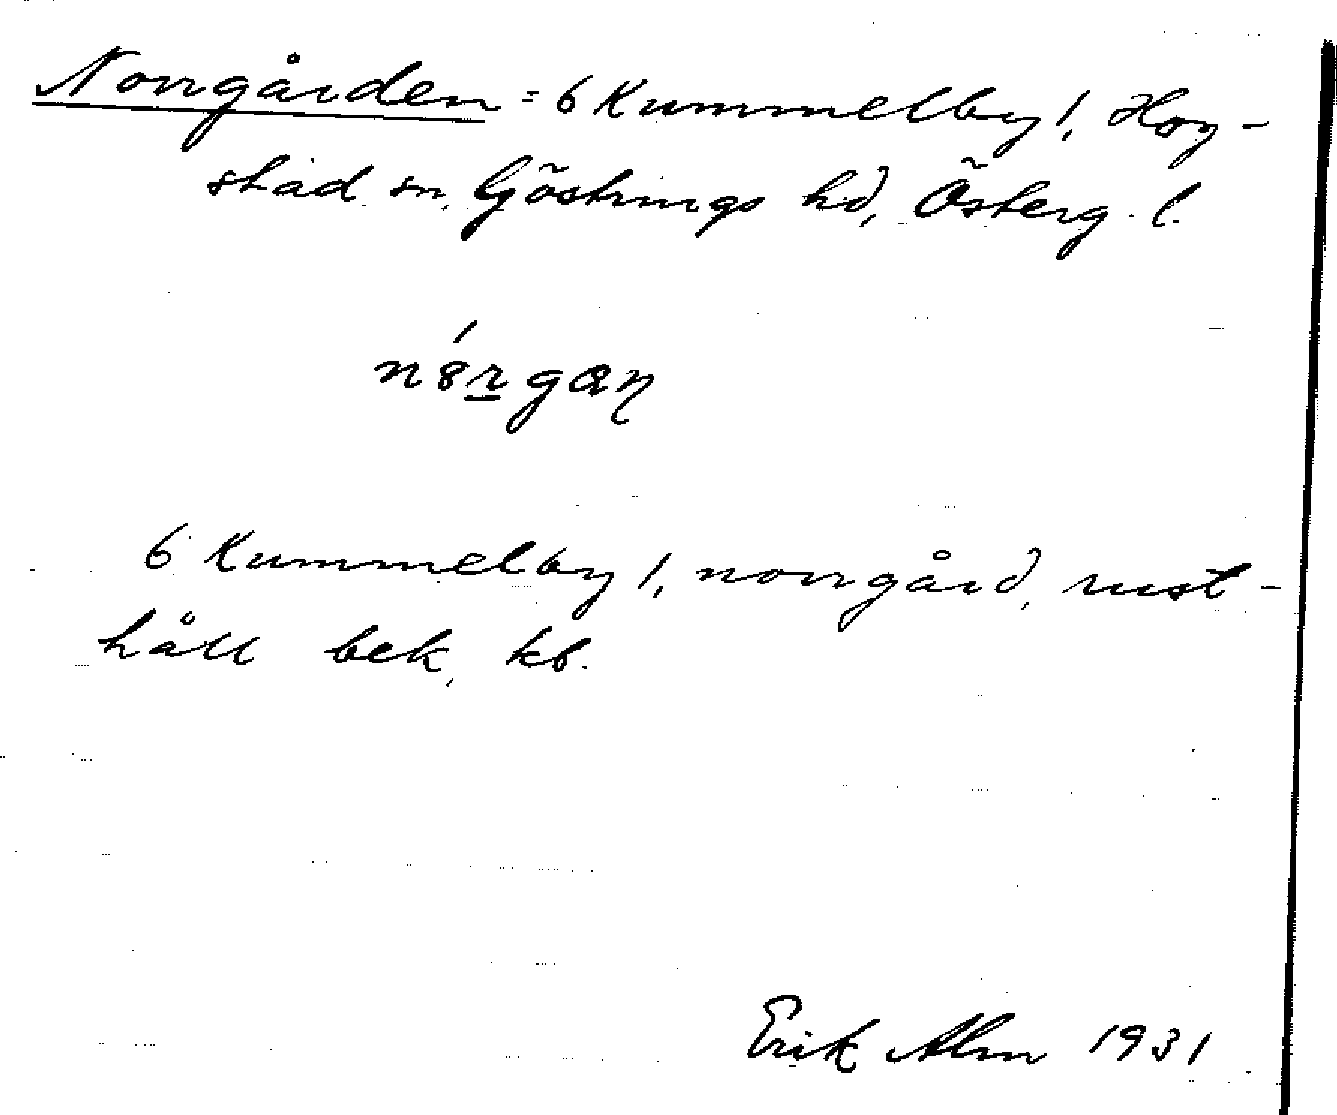 Norrgården = 6 Kummelby 1, Hog-
stad sn, Göstrings hd, Österg. l.
6 Kummelby 1, norrgård, rust-
håll bek, kb.
Erik Alm 1931